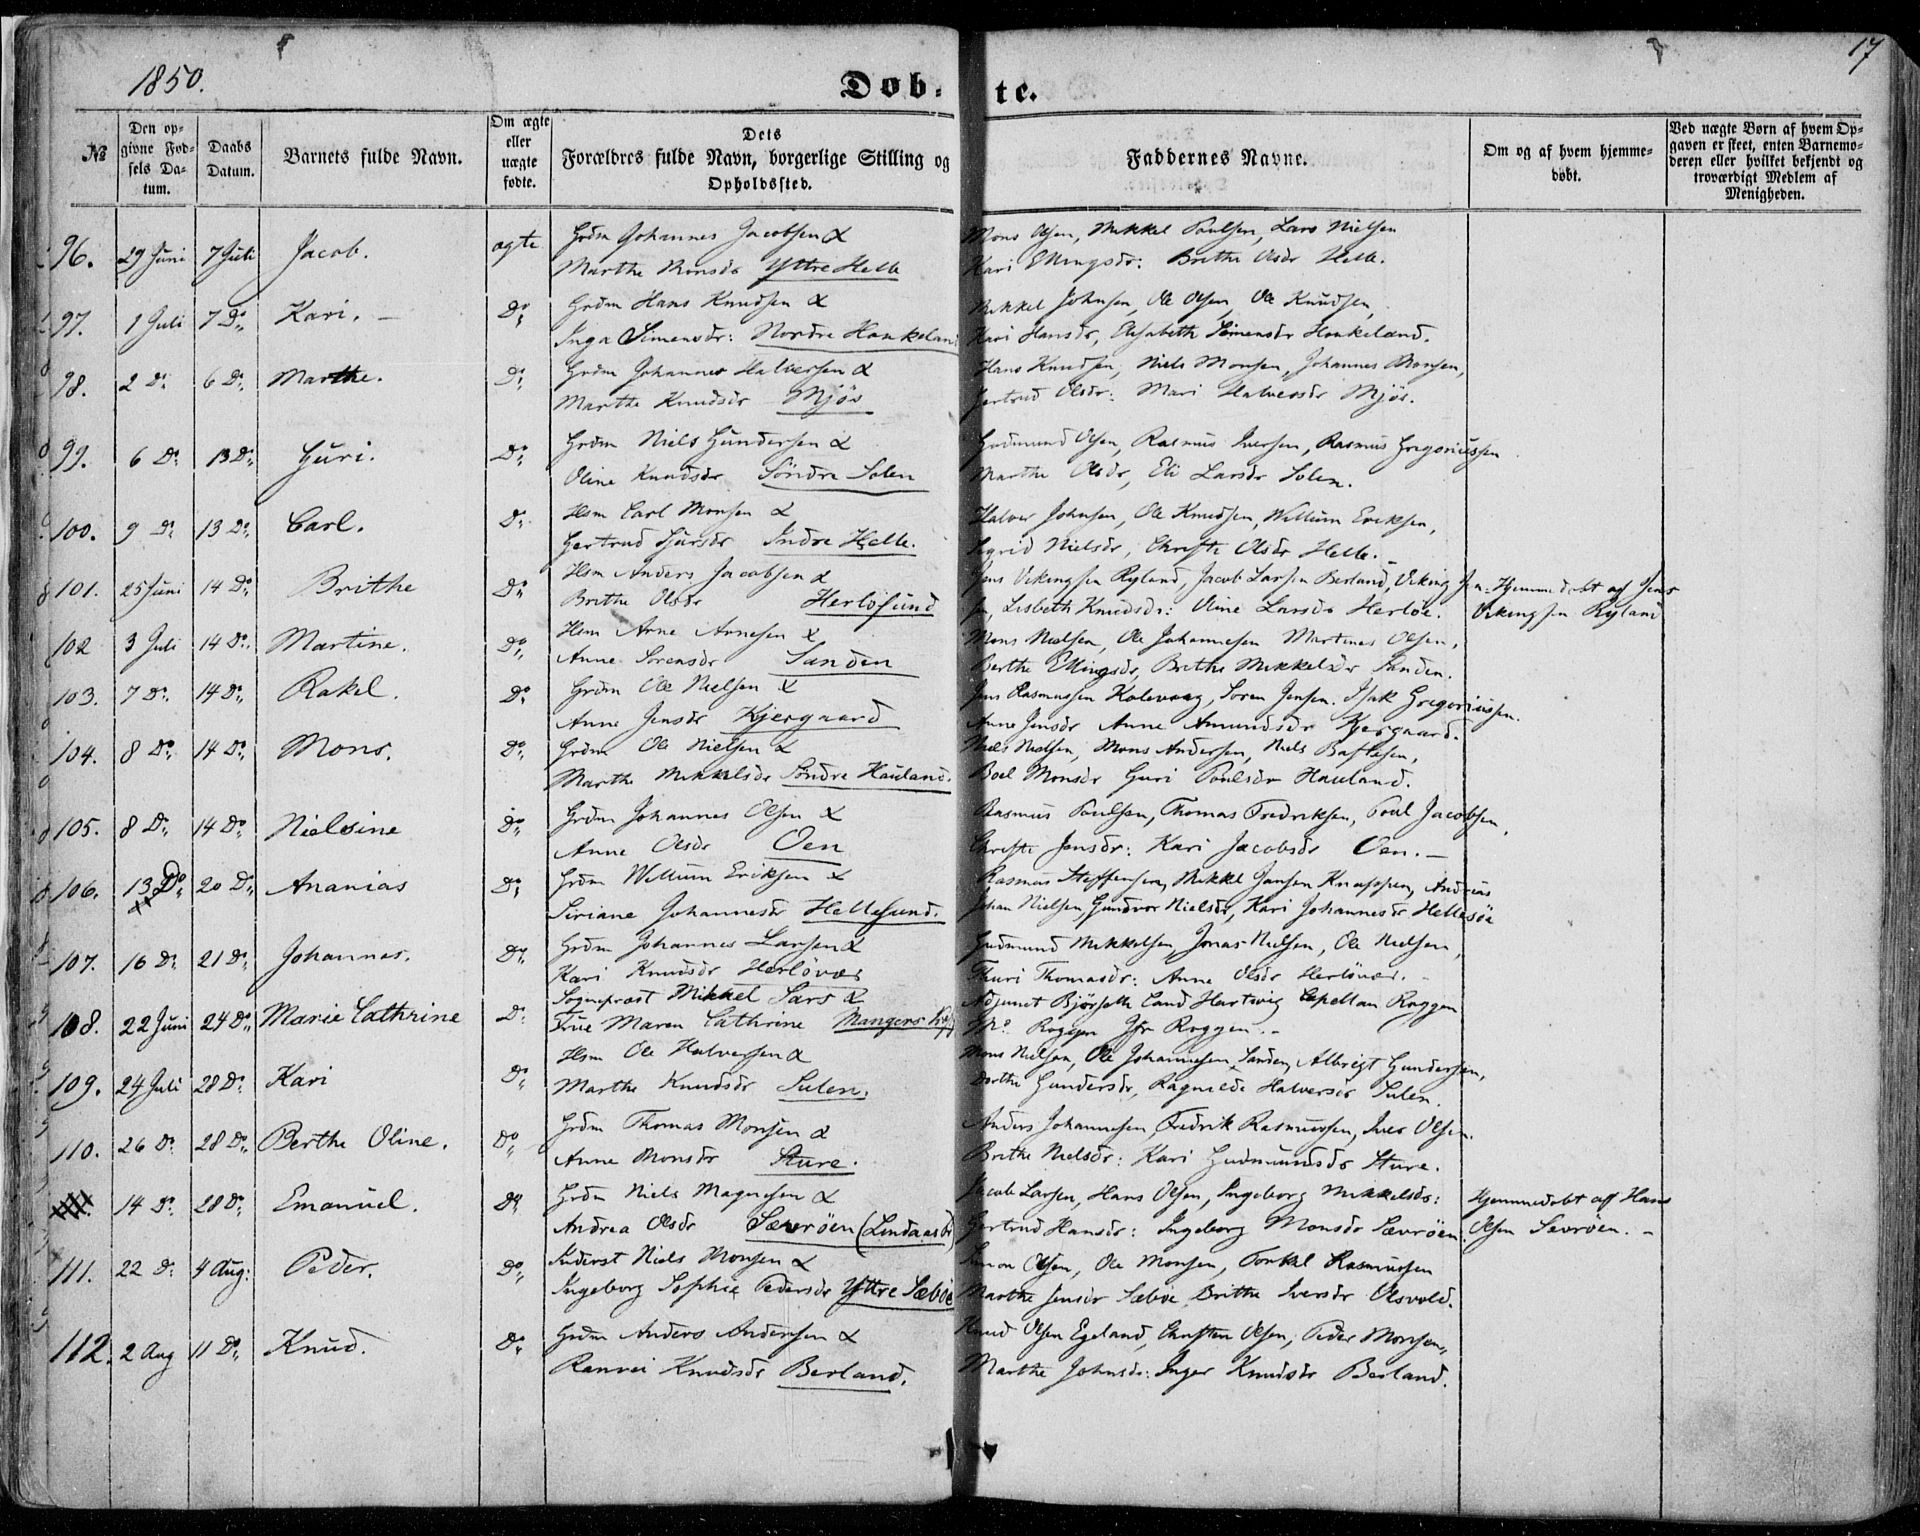 1850.
Døb-
te.
17
No
Den op-
givne Fød-
sels Da-
tum.
Daabs
Datum.
Barnets fulde Navn.
Om ægte
eller
uægte
fødte.
Dets
Forældres fulde Navn, borgerlige Stilling og
Opholdssted.
Faddernes Navne.
Om og af hvem hjemme-
døbt.
Ved uægte Børn af hvem Op-
gaven er skeet, enten Barnemo-
deren eller hvilket bekjendt og
troværdigt Medlem af
Menigheden.
96. 29 Juni 7 Juli Jacob. ægte Grdm Johannes Jacobsen & Mons Olsen, Mikkel Poulsen, Lars Nielsen
Marthe Monsdr Yttre Helle Kari Ellingsdr: Brithe Olsdr Helle.
97. 1 Juli 7 Do Kari. – Do Grdm Hans Knudsen & Mikkel Johnsen, Ole Olsen, Ole Knudsen,
Inga Simensdr: Nordre Honkeland Kari Hansdr, Elisabeth Simensdr Honkeland.
98. 2 Do 6 Do Marthe. Do Grdm Johannes Halversen & Hans Knudsen, Niels Monsen, Johannes Monsen,
Marthe Knudsdr Mjøs Gertrud Olsdr: Mari Halversdr Mjøs.
99. 6 Do 13 Do Guri. Do Grdm Niels Gundersen & Gudmund Olsen, Rasmus Iversen, Rasmus Gregoriussen
Oline Knudsdr Söndre Solen Marthe Olsdr, Eli Larsdr Solen.
100. 9 Do 13 Do Carl. Do Hsm Carl Monsen & Halver Johnsen, Ole Knudsen, Willum Eriksen,
Gertrud Sjursdr Indre Helle. Sigrid Nielsdr, Christe Olsdr Helle. –
101. 25 Juni 14 Do Brithe Do Hsm Anders Jacobsen & Jens Vikingsen Ryland, Jacob Larsen Berland, Viking Jen- Hjemmedøbt af Jens
Brithe Olsdr Herlösund sen, Lisbeth Knudsdr: Oline Larsdr Herlöe. Vikingsen Ryland
102 3 Juli 14 Do Martine. Do Hsm Arne Arnesen & Mons Nielsen, Ole Johannesen Martines Olsen,
Anne Sorensdr Sanden Berthe Ellingsdr, Brithe Mikkelsdr Sanden.
103. 7 Do 14 Do Rakel. Do Grdm Ole Nielsen & Jens Rasmussen Kolevaag, Soren Jensen. Isak Gregoriussen.
Anne Jensdr Kjergaard Anne Jensdr Anne Amundsdr Kjergaard.
104. 8 Do 14 Do Mons. Do Grdm Ole Nielsen & Niels Nielsen, Mons Andersen, Niels Bastesen,
Marthe Mikkelsdr Söndre Hauland. Boel Monsdr Guri Poulsdr Hauland.
105. 8 Do 14 Do Nielsine Do Grdm Johannes Olsen & Rasmus Poulsen, Thomas Fredriksen, Poul Jacobsen,
Anne Olsdr Oen Christe Jensdr: Kari Jacobsdr Oen. –
106. 13 Do 20 Do Ananias Do Grdm Willum Eriksen & Rasmus Steffensen, Mikkel Jansen Knappen, Andreas
Siriane Johannesdr Hellesund. Johan Nielsen, Gundvor Nielsdr, Kari Johannesdr Hellesöe
107. 16 Do 21 Do Johannes. Do Grdm Johannes Larsen & Gudmund Mikkelsen, Jonas Nielsen, Ole Nielsen,
Kari Knudsdr Herlövær Thuri Thomasdr: Anne Olsdr Herlövær. –
108. 22 Juni 24 Do Marie Cathrine Do Sognepræst Mikkel Sars & Adjunct Björseth Cand Hartwig Capellan Roggen
Frue Maren Cathrine Mangers Roggen Jfr Roggen. –
109. 24 Juli 28 Do Kari Do Hsm Ole Halversen & Mons Nielsen, Ole Johannesen Sanden, Albrigt Gundersen,
Marthe Knudsdr Sulen. Dorthe Gundersdr, Ragnilde Halversdr Sulen.
110. 26 Do 28 Do Berthe Oline. Do Grdm Thomas Monsen & Anders Johannesen, Fredrik Rasmussen, Iver Olsen.
Anne Monsdr Sture. Brithe Nielsdr: Kari Gudmundsdr Sture.
14 Do 28 Do Emanuel. Do Grdm Niels Magnesen & Jacob Larsen, Hans Olsen, Ingeborg Mikkelsdr: Hjemmedøbt aff Hans
Andrea Olsdr Sævröen (Lindaas) Gertrud Hansdr: Ingeborg Monsdr Sævröen. Olsen Sevröen. –
111. 22 Do 4 Aug: Peder. Do Inderst Niels Monsen & Simon Olsen, Ole Monsen, Torkel Rasmussen
Ingeborg Sophie Pedersdr Yttre Sæböe Marthe Jensdr Sæböe, Brithe Iversdr Olsvold.
112. 2 Aug 11 Do Knud. Do Grdm Anders Andersen & Knud Olsen Egeland, Christen Olsen, Peder Monsen,
Ranvei Knudsdr Berland. Marthe Johnsdr: Inger Knudsdr Berland.